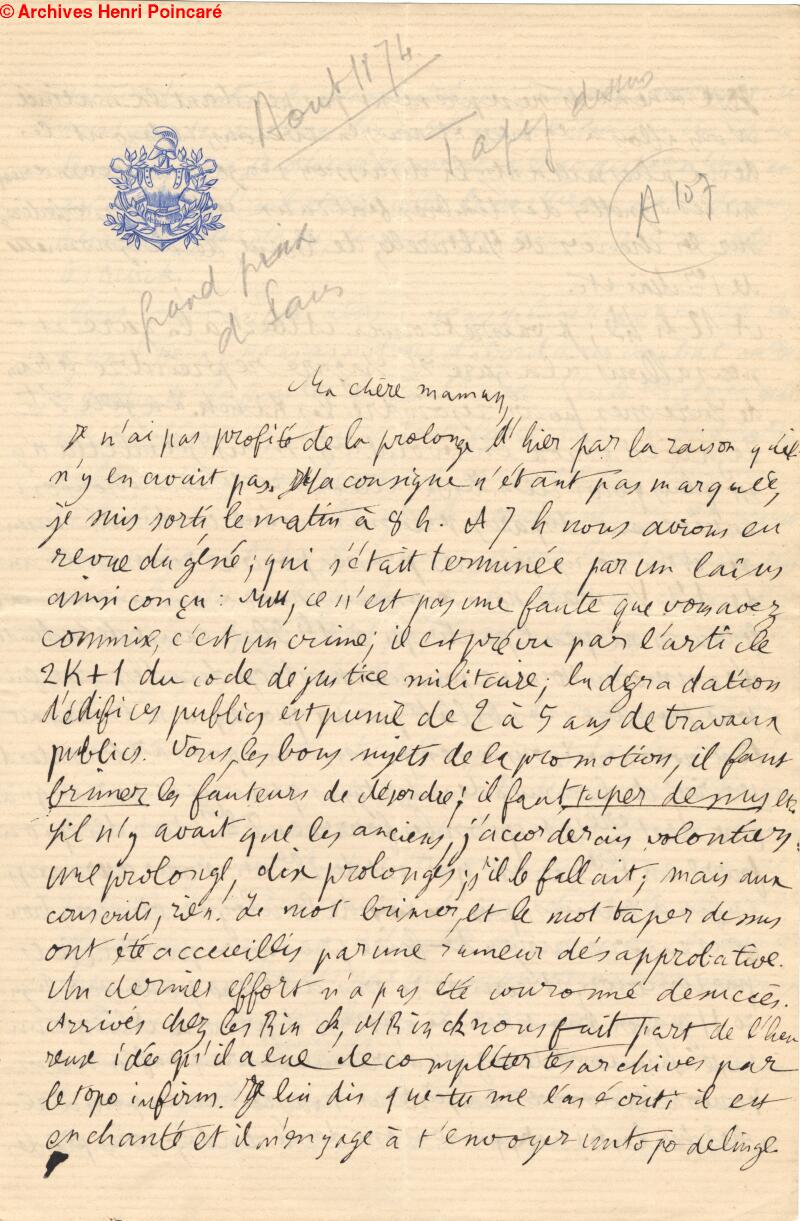 © Archives Henri Poincaré
Aout 1874.
Tapez dessus
A 107
Grand prix
de Paris
Ma chère maman,
Je n'ai pas profité de la prolonge d'hier par la raison qu'il
n'y en avait pas. La consigne n'étant pas marquée,
je suis sorti le matin à 8 h. A 7 h nous avions eu
revue du géné; qui s'était terminée par un laïus
ainsi conçu : ce n'est pas une faute que vous avez
commise, c'est un crime; il est prévu par l'article
2K+1 du code de justice militaire; la dégradation
d'édifices publics est punie de 2 à 5 ans de travaux
publics. Vous, les bons sujets de la promotion, il faut
brimer les fauteurs de désordre; il faut taper dessus etc.
S'il n'y avait que les anciens, j'accorderais volontiers
une prolonge, dix prolonges, s'il le fallait; mais aux
conscrits, rien! Le mot brimer, et le mot taper dessus
ont été accueillis par une rumeur désapprobative.
Un dernier effort n'a pas été couronné de succès.
Arrivés chez les Rinck, M Rinck nous fait part de l'heu
reuse idée qu'il a eue de compléter tes archives par
le topo infirm. Je lui dis que tu me l'as écrit; il est
enchanté et il m'engage à t'envoyer un topo de linge